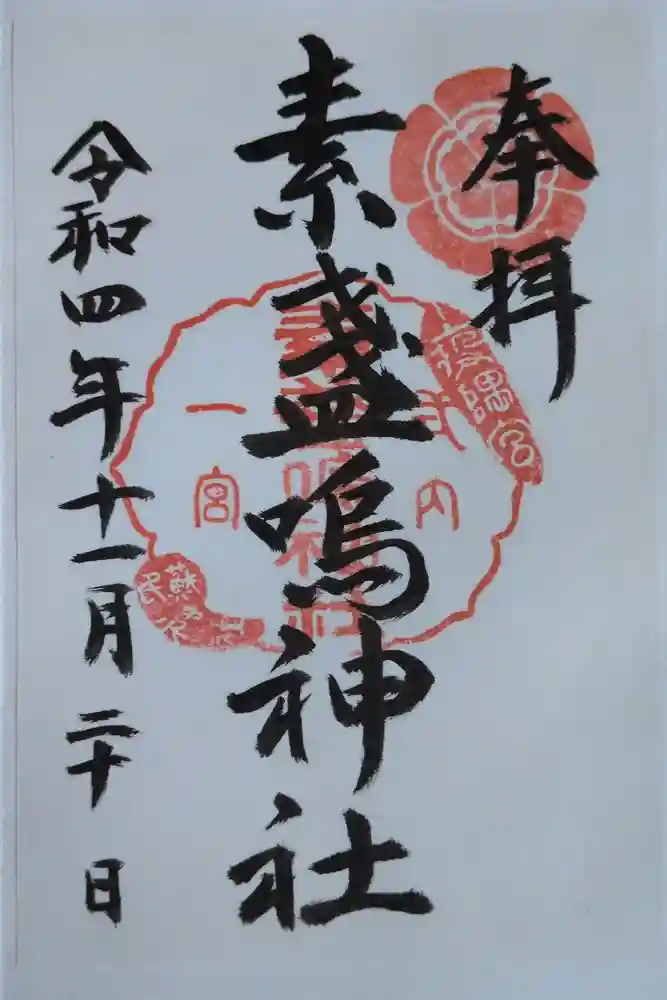 奉拝
素盞嗚神社
令和四年十一月二十日
式内
一宮
素盞嗚神社
疫隅宮
蘇民